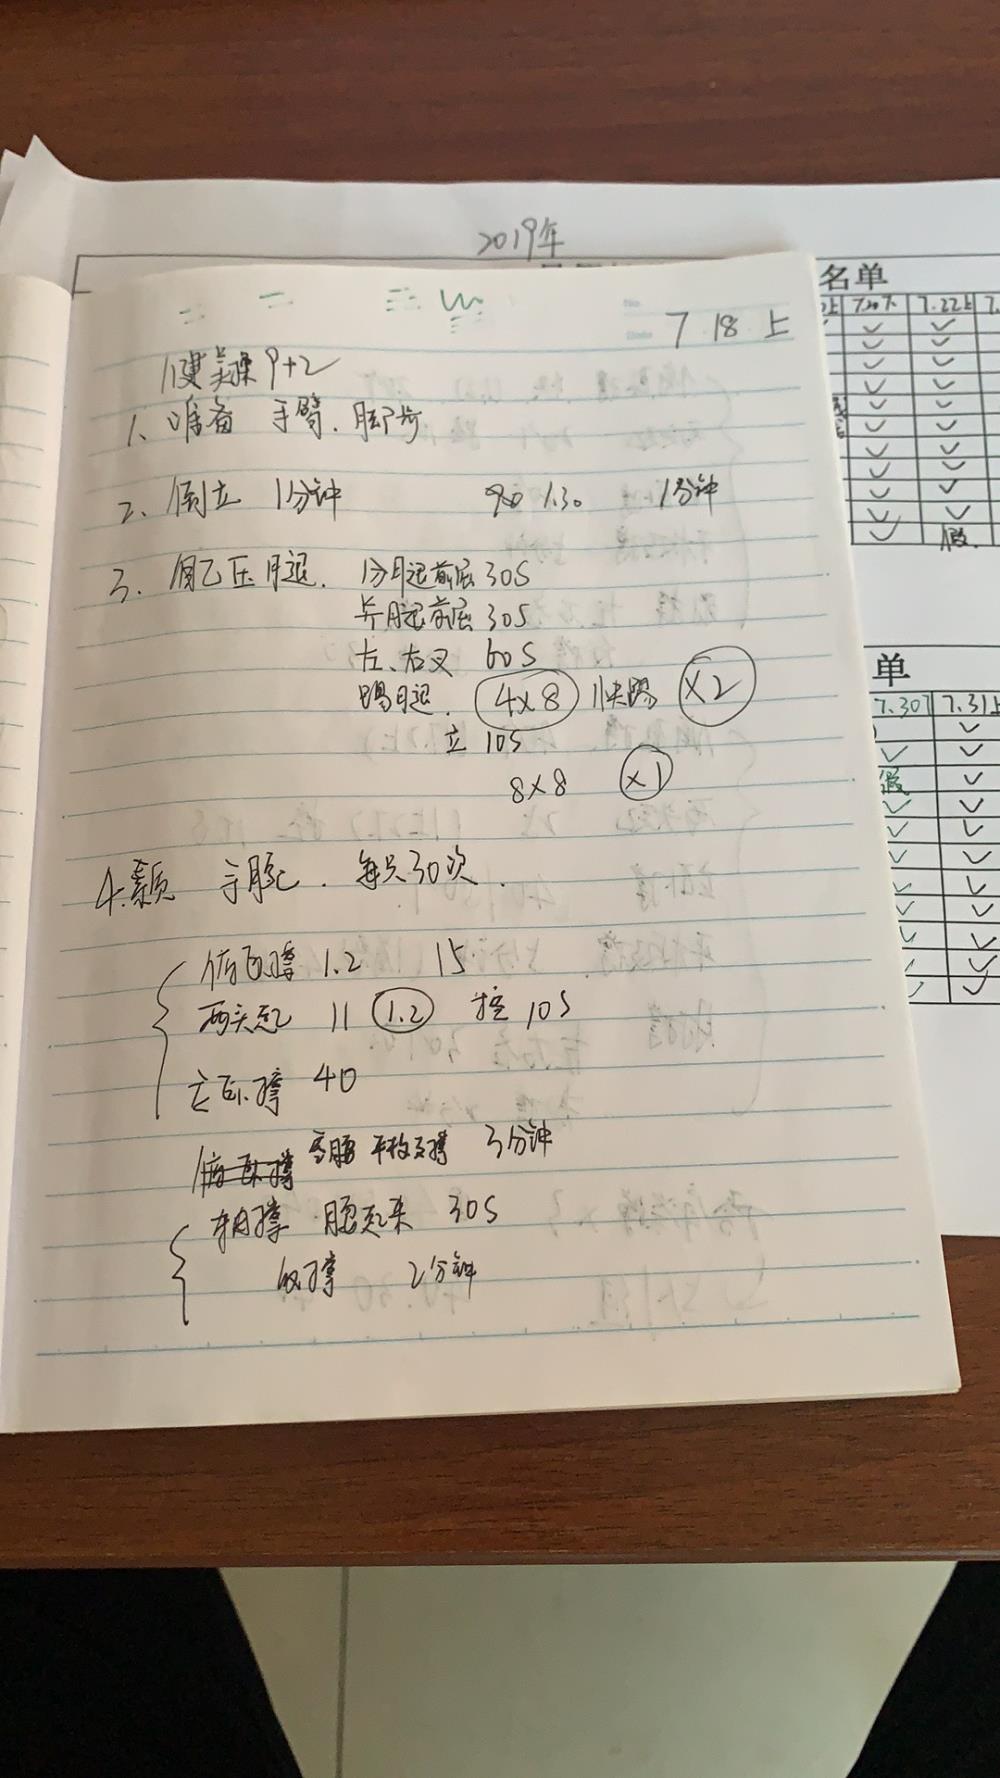 2019年
名单
7.20下 7.22上
7 18 上
健美操 9+2
1、准备 手臂、脚步
2、倒立 1分钟 90 1.30 1分钟
假
3、自己压腿. 分腿前屈 30S
并腿前屈 30S
左、右叉 60S
单
踢腿. 4×8 快踢 ×2
7.30下 7.31上
立 10S
假
8×8 ×1
4.素质 手腕. 每只30次.
俯卧撑 1.2 15
两头起 11 1.2 控 10S
立卧撑 40
俯卧撑 平板支撑 3分钟
腿起来 30S
2分钟